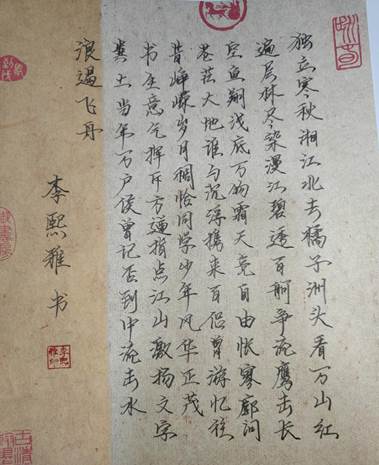 独立寒秋湘江北去橘子洲头看万山红
遍层林尽染漫江碧透百舸争流鹰击长
空鱼翔浅底万类霜天竞自由怅寥廓问
苍茫大地谁主沉浮携来百侣曾游忆往
昔峥嵘岁月稠恰同学少年风华正茂
书生意气挥斥方遒指点江山激扬文字
粪土当年万户侯曾记否到中流击水
浪遏飞舟
李熙雅书